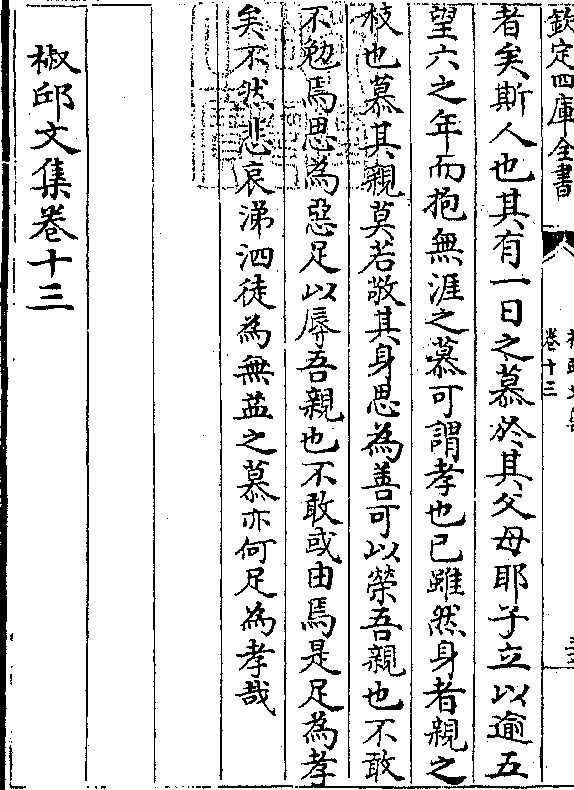 欽定四庫全書
卷十三
者矣斯人也其有一日之慕於其父母耶子立以逾五
望六之年而抱無涯之慕可謂孝也已雖然身者親之
枝也慕其親莫若敬其身思為善可以榮吾親也不敢
不勉焉思為惡足以辱吾親也不敢或由焉是足為孝
矣不然悲哀涕泗徒為無益之慕亦何足為孝哉
椒邱文集卷十三